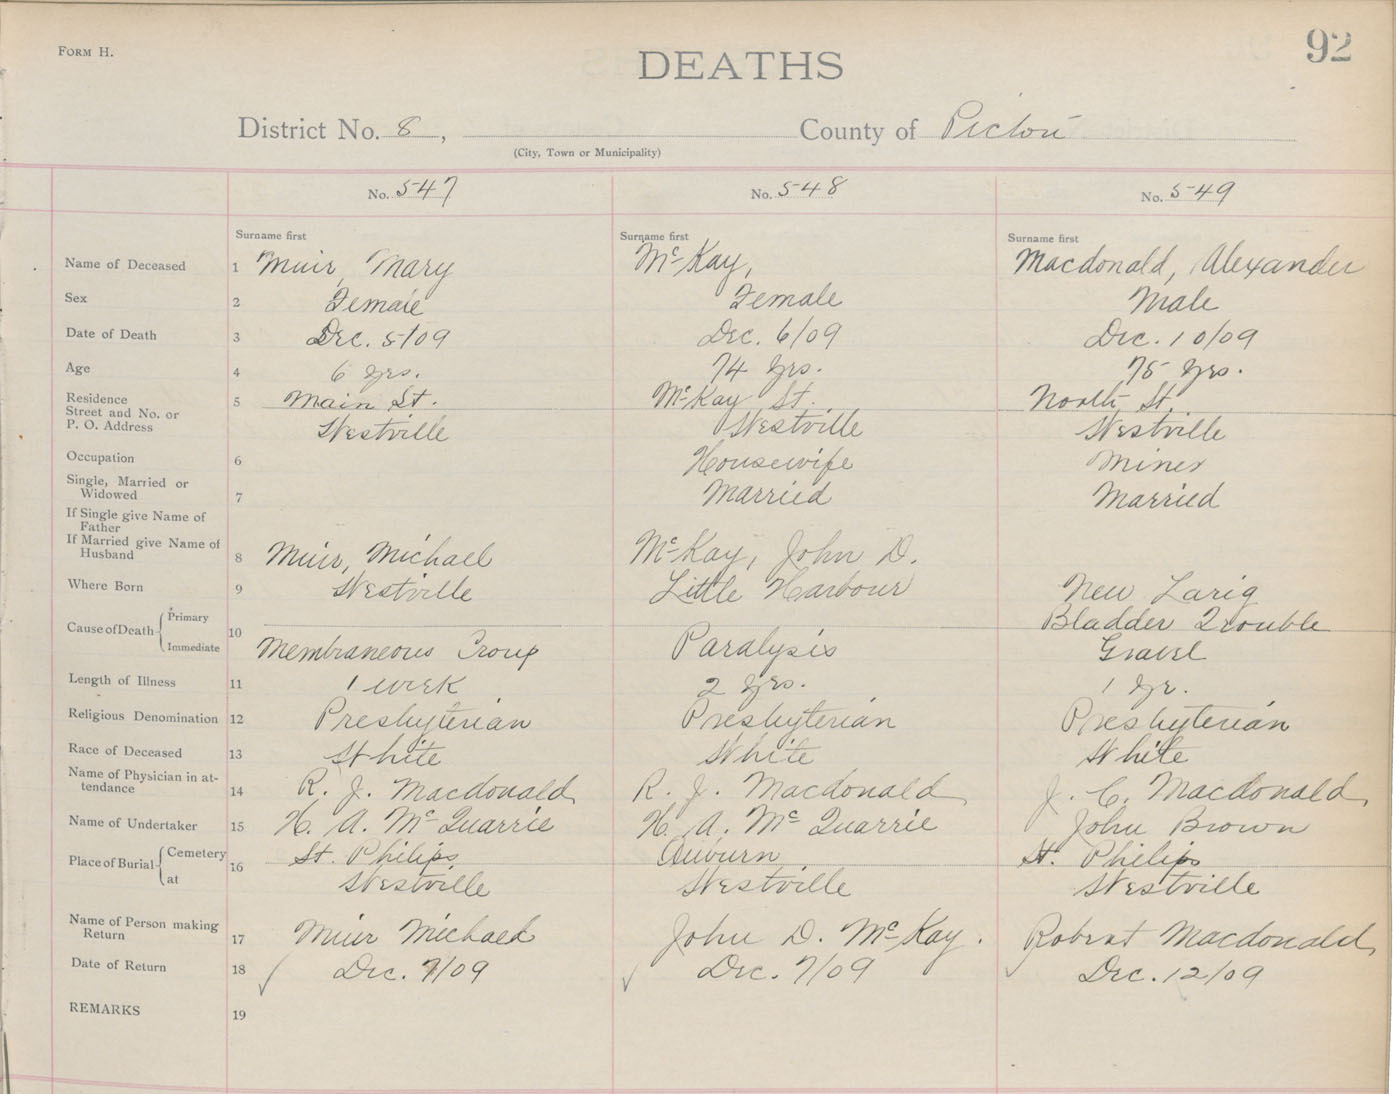 FORM H.
92
DEATHS
District No. 8, County of Pictou
(City, Town or Municipality)
No. 547 No. 548 No. 549
Surname first Surname first Surname first
Name of Deceased 1 Muir, Mary McKay, Macdonald, Alexander
Sex 2 Female Female Male
Date of Death 3 Dec. 5/09 Dec. 6/09 Dec. 10/09
Age 4 6 yrs. 74 yrs. 75 yrs.
Residence 5 Main St. McKay St. North St.
Street and No. or
P. O. Address Westville Westville Westville
Occupation 6 Housewife Miner
Single, Married or
Widowed 7 Married Married
If Single give Name of
Father
If Married give Name of
Husband 8 Muir, Michael McKay, John D.
Where Born 9 Westville Little Harbour New Larig
Cause of Death Primary 10 Bladder Trouble
Immediate Membraneous Croup Paralysis Gravel
Length of Illness 11 1 week 2 yrs. 1 yr.
Religious Denomination 12 Presbyterian Presbyterian Presbyterian
Race of Deceased 13 White White White
Name of Physician in at-
tendance 14 R. J. Macdonald R. J. Macdonald J. C. Macdonald
Name of Undertaker 15 H. A. McQuarrie H. A. McQuarrie John Brown
Place of Burial Cemetery 16 St. Philips Auburn St. Philips
at Westville Westville Westville
Name of Person making
Return 17 Muir Michael John D. McKay. Robert Macdonald
Date of Return 18 Dec. 7/09 Dec. 7/09 Dec. 12/09
REMARKS 19